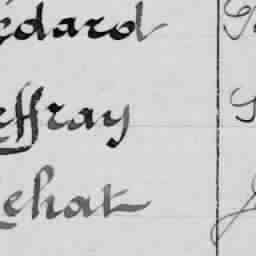 édard
effray
ehat